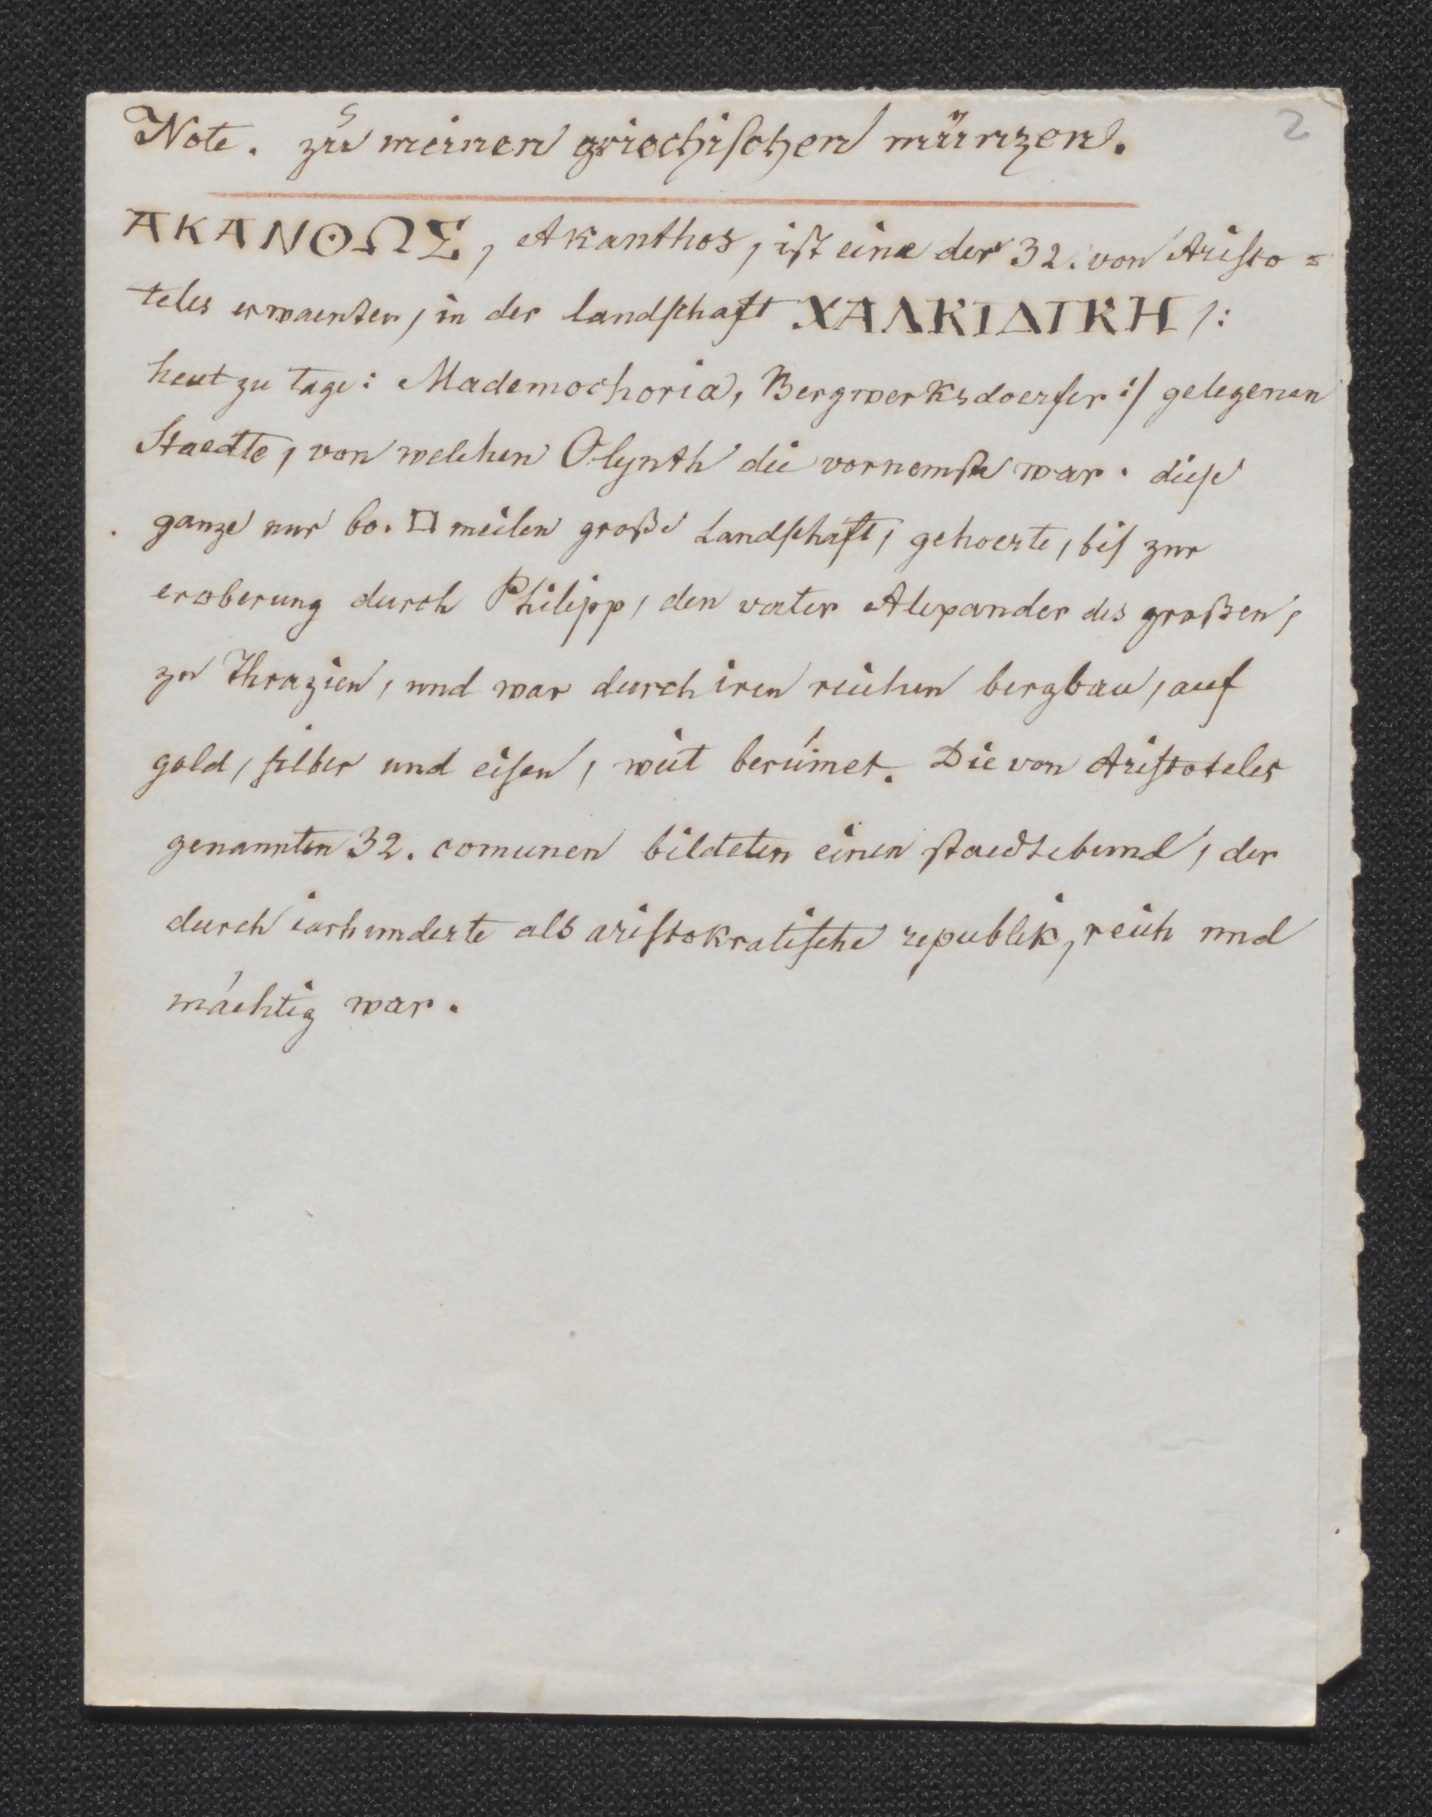 Note. zu meinen griechischen münzen. 2
ΑΚΑΝΘΩΣ, Akanthos, ist eine der 32. von Aristo=
teles erwaenten, in der landschaft ΧΑΛΚΙΔΙΚΗ /:
heut zu tage: Mademochoria, Bergwerksdoerfer :/ gelegenen
Staedte, von welchen Olynth die vornemste war. diese
ganze nur 60. □ meilen große Landschaft, gehoerte, bis zur
eroberung durch Philipp, den vater Alexander des großen,
zu Thrazien, und war durch iren reichen bergbau, auf
gold, silber und eisen, weit berümet. Die von Aristoteles
genannten 32. comunen bildeten einen staedtebund, der
durch iarhunderte als aristokratische republik, reich und
mächtig war.